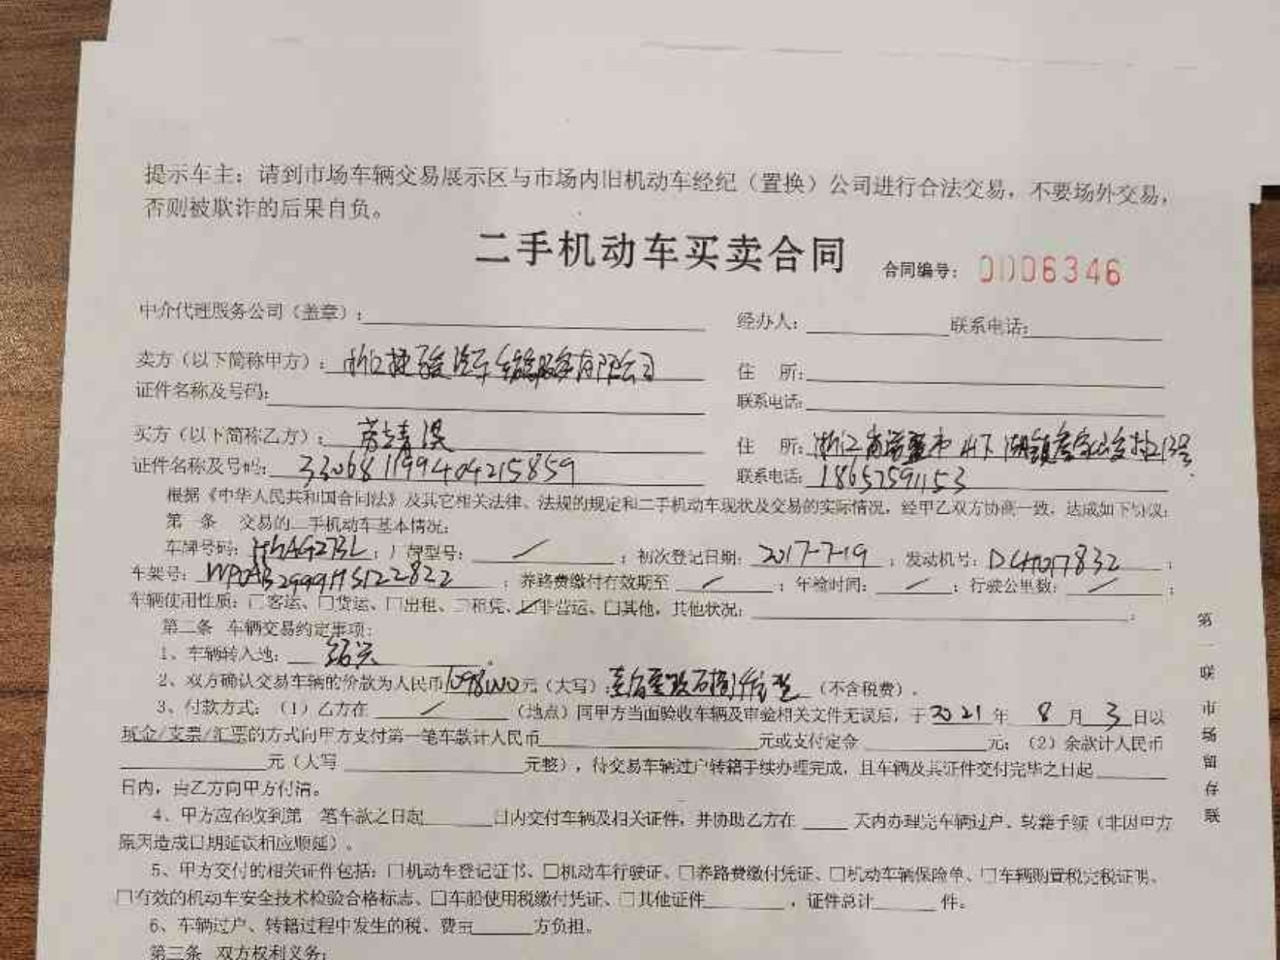 提示车主：请到市场车辆交易展示区与市场内旧机动车经纪（置换）公司进行合法交易，不要场外交易，
否则被欺诈的后果自负。
二手机动车买卖合同 合同编号：0006346
中介代理服务公司（盖章）： 经办人： 联系电话：
卖方（以下简称甲方）：浙江捷骏汽车销售服务有限公司 住 所：
证件名称及号码： 联系电话：
买方（以下简称乙方）： 住 所：浙江省诸暨市山下湖镇
证件名称及号码：330681199404215859 联系电话：18657591153
根据《中华人民共和国合同法》及其它相关法律、法规的规定和二手机动车现状及交易的实际情况，经甲乙双方协商一致，达成如下协议：
第一条 交易的二手机动车基本情况：
车牌号码： ；厂牌型号：／ ；初次登记日期：2017-7-19 ；发动机号：DCH017832 ；
车架号：WP0AB2999HS122822 ；养路费缴付有效期至 ／ ；年检时间：／ ；行驶公里数：／ ；
车辆使用性质：□客运、□货运、□出租、□租凭、☑非营运、□其他，其他状况： ；
第二条 车辆交易约定事项：
1、车辆转入地：绍兴 。
2、双方确认交易车辆的价款为人民币1098000元（大写）： （不含税费）。
3、付款方式：（1）乙方在 ／ （地点）同甲方当面验收车辆及审验相关文件无误后，于2021年 8月 3日以
现金/支票/汇票的方式向甲方支付第一笔车款计人民币 元或支付定金 元；（2）余款计人民币
元（大写 元整），待交易车辆过户转籍手续办理完成，且车辆及其证件交付完毕之日起
日内，由乙方向甲方付清。
4、甲方应在收到第一笔车款之日起 日内交付车辆及相关证件，并协助乙方在 天内办理完车辆过户、转籍手续（非因甲方
原因造成日期延误相应顺延）。
5、甲方交付的相关证件包括：□机动车登记证书、□机动车行驶证、□养路费缴付凭证、□机动车辆保险单、□车辆购置税完税证明、
□有效的机动车安全技术检验合格标志、□车船使用税缴付凭证、□其他证件 ，证件总计 件。
6、车辆过户、转籍过程中发生的税、费由 方负担。
第三条 双方权利义务：
第一联 市场留存联